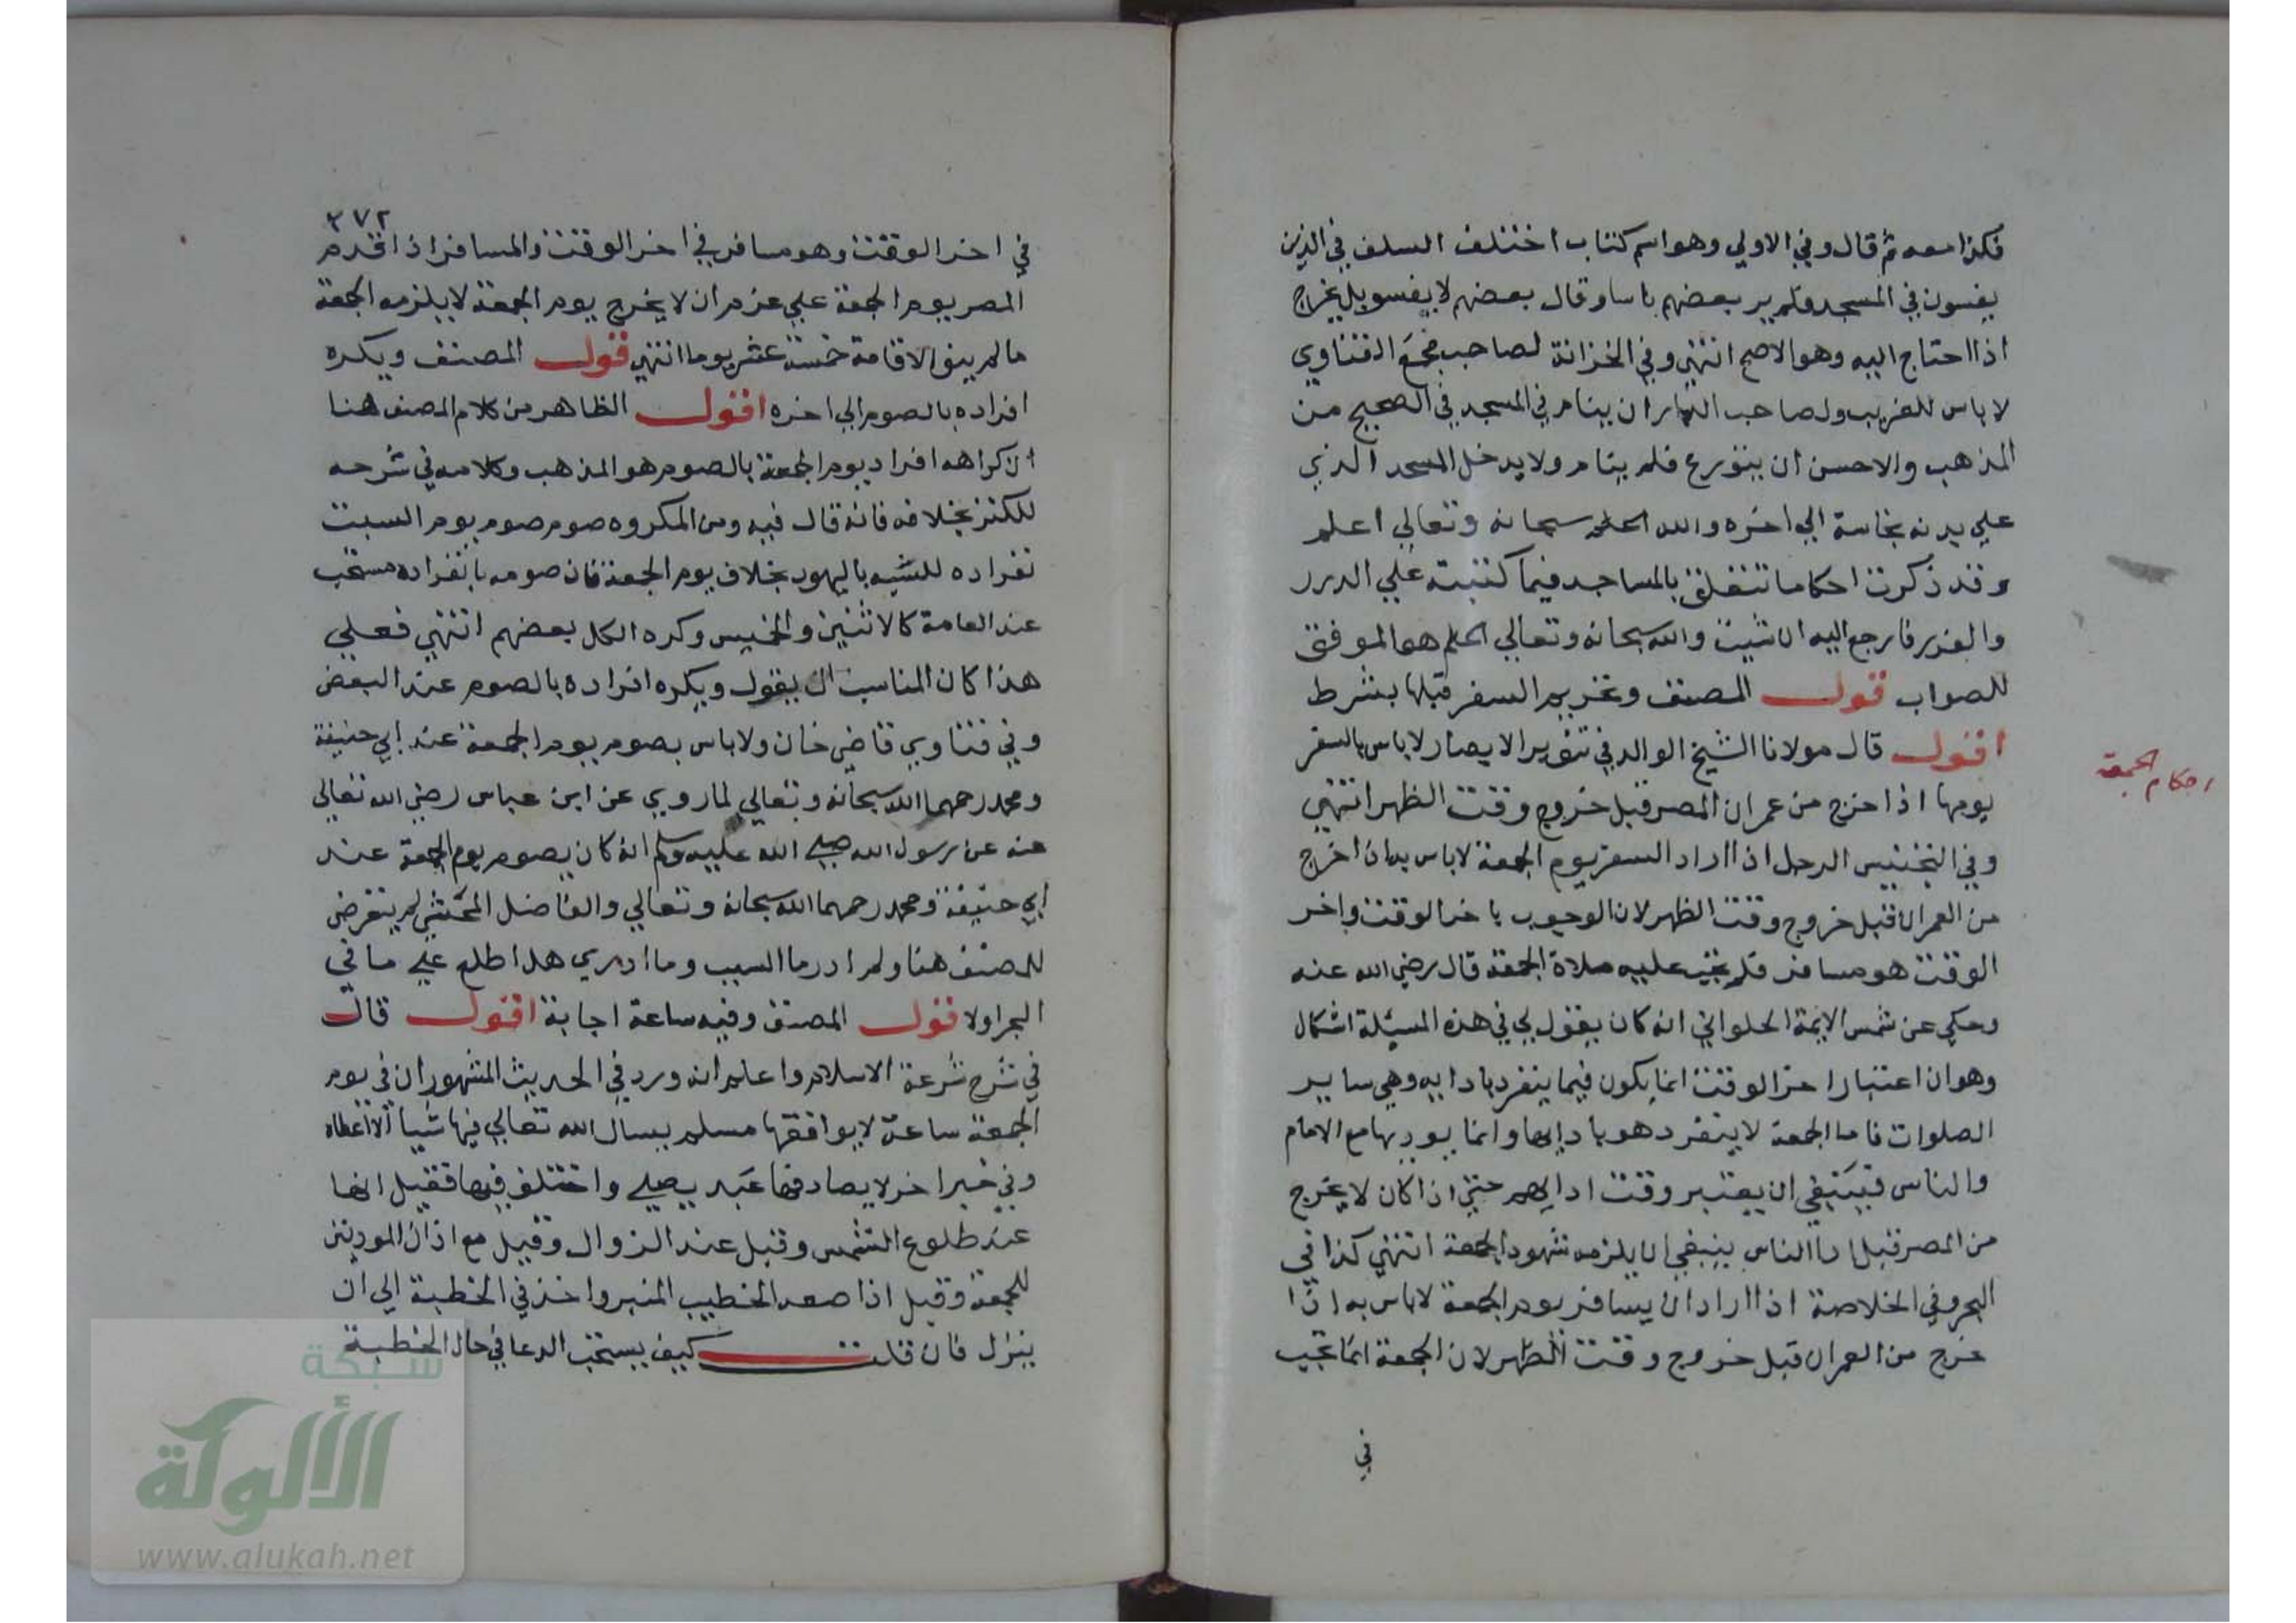 فكذا معه ثم قال وفي الاولي وهو اسم كتاب اختلف السلف في الذين
يفسون في المسجد فلم ير بعضهم باسا وقال بعضهم لا يفسو بل يخرج
اذا احتاج اليه وهو الاصح انتهي وفي الخزانة لصاحب مجمع الفتاوي
لا باس للغريب ولصاحب الدار ان ينام في المسجد في الصحيح من
المذهب والاحسن ان يتورع فلم ينام ولا يدخل المسجد الذي
علي بدنه نجاسة الي اخره والله سبحانه وتعالي اعلم
وقد ذكرت احكاما تتعلق بالمساجد فيما كتبته علي الدرر
والغرر فارجع اليه ان شيت والله سبحانه وتعالي هو الموفق
للصواب قول المصنف وتحريم السفر قبلها بشرط
اقول قال مولانا الشيخ الوالد في تنوير الابصار لا باس بالسفر
يومها اذا خرج من عمران المصر قبل خروج وقت الظهر انتهي
وفي التجنيس الرجل اذا اراد السفر يوم الجمعة لا باس به اذا خرج
من العمران قبل خروج وقت الظهر لان الوجوب باخر الوقت واخر
الوقت هو مسافر فلم تجب عليه صلاة الجمعة قال رضي الله عنه
وحكي عن شمس الايمة الحلواني انه كان يقول لي في هذه المسيلة اشكال
وهو ان اعتبار اخر الوقت انما يكون فيما ينفرد بادايه وهي ساير
الصلوات فاما الجمعة لا ينفرد هو بادايها وانما يوديها مع الامام
والناس فينبغي ان يعتبر وقت ادايهم حتي اذا كان لا يخرج
من المصر قبل ادا الناس ينبغي ان يلزمه شهود الجمعة انتهي كذا في
البحر وفي الخلاصة اذا اراد ان يسافر يوم الجمعة لا باس به اذا
خرج من العمران قبل خروج وقت الظهر لان الجمعة انما تجب
في
احكام الجمعة
٣٧٢
في اخر الوقت وهو مسافر في اخر الوقت والمسافر اذا قدم
المصر يوم الجمعة علي عزم ان لا يخرج يوم الجمعة لا يلزمه الجمعة
ما لم ينو الاقامة خمسة عشر يوما انتهي قول المصنف ويكره
افراده بالصوم الي اخره اقول الظاهر من كلام المصنف هنا
ان كراهه افراد يوم الجمعة بالصوم هو المذهب وكلامه في شرحه
للكنز بخلافه فانه قال فيه ومن المكروه صوم صوم يوم السبت
بانفراده للتشبه باليهود بخلاف يوم الجمعة فان صومه بانفراده مستحب
عند العامة كالاثنين والخميس وكره الكل بعضهم انتهي فعلي
هذا كان المناسب ان يقول ويكره افراده بالصوم عند البعض
وفي فتاوي قاضي خان ولا باس بصوم يوم الجمعة عند ابي حنيفة
ومحمد رحمهما الله سبحانه وتعالي لما روي عن ابن عباس رضي الله تعالي
عنه عن رسول الله صلي الله عليه وسلم انه كان يصوم يوم الجمعة عند
ابي حنيفة ومحمد رحمهما الله سبحانه وتعالي والفاضل المحشي لم يتعرض
للمصنف هنا ولم ادر ما السبب وما ادري هل اطلع علي ما في
البحر اولا قول المصنف وفيه ساعة اجابة اقول قال
في شرح شرعة الاسلام واعلم انه ورد في الحديث المشهور ان في يوم
الجمعة ساعة لا يوافقها مسلم يسال الله تعالي فيها شيا الا اعطاه
وفي خبر اخر لا يصادفها عبد يصلي واختلف فيها فقيل انها
عند طلوع الشمس وقيل عند الزوال وقيل مع اذان الموذنين
للجمعة وقيل اذا صعد الخطيب المنبر واخذ في الخطبة الي ان
ينزل فان قلت كيف يستحب الدعا في حال الخطبة
شبكة
الألوكة
www.alukah.net